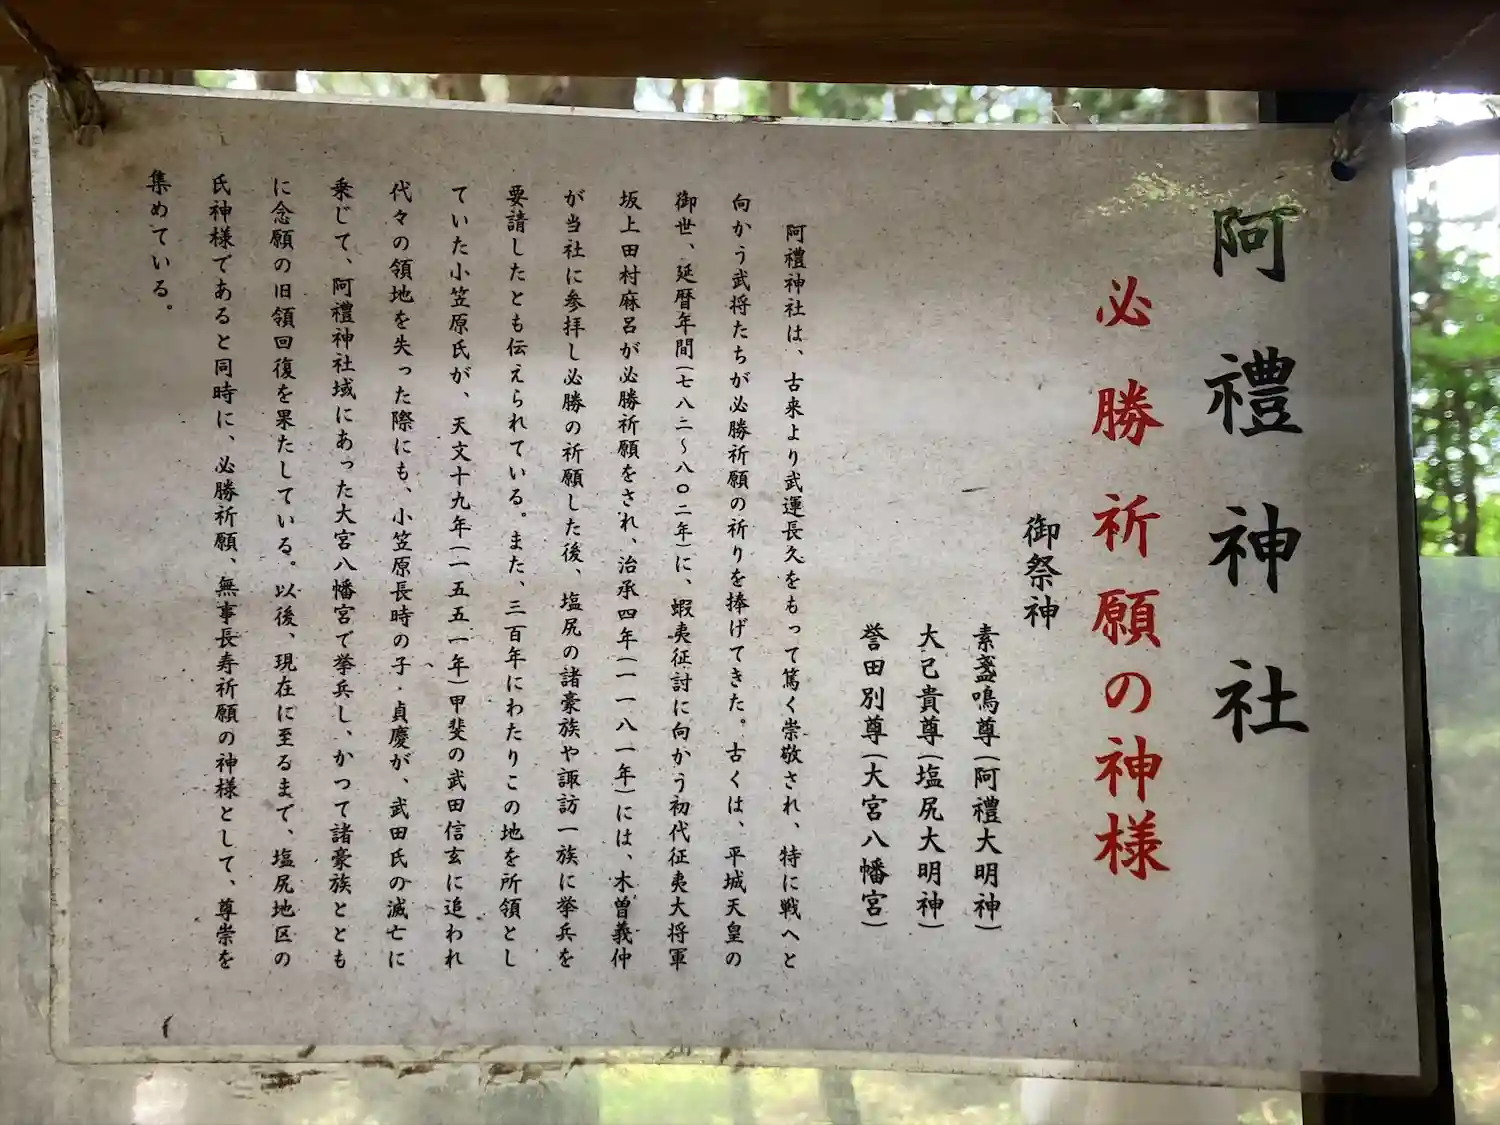 阿禮神社
必勝祈願の神様
御祭神
素盞嗚尊(阿禮大明神)
大己貴尊(塩尻大明神)
誉田別尊(大宮八幡宮)
阿禮神社は、古来より武運長久をもって篤く崇敬され、特に戦へと
向かう武将たちが必勝祈願の祈りを捧げてきた。古くは、平城天皇の
御世、延暦年間(七八二~八〇二年)に、蝦夷征討に向かう初代征夷大将軍
坂上田村麻呂が必勝祈願をされ、治承四年(一一八一年)には、木曽義仲
が当社に参拝し必勝の祈願した後、塩尻の諸豪族や諏訪一族に挙兵を
要請したとも伝えられている。また、三百年にわたりこの地を所領とし
ていた小笠原氏が、天文十九年(一五五一年)甲斐の武田信玄に追われ
代々の領地を失った際にも、小笠原長時の子・貞慶が、武田氏の滅亡に
乗じて、阿禮神社域にあった大宮八幡宮で挙兵し、かつて諸豪族ととも
に念願の旧領回復を果たしている。以後、現在に至るまで、塩尻地区の
氏神様であると同時に、必勝祈願、無事長寿祈願の神様として、尊崇を
集めている。